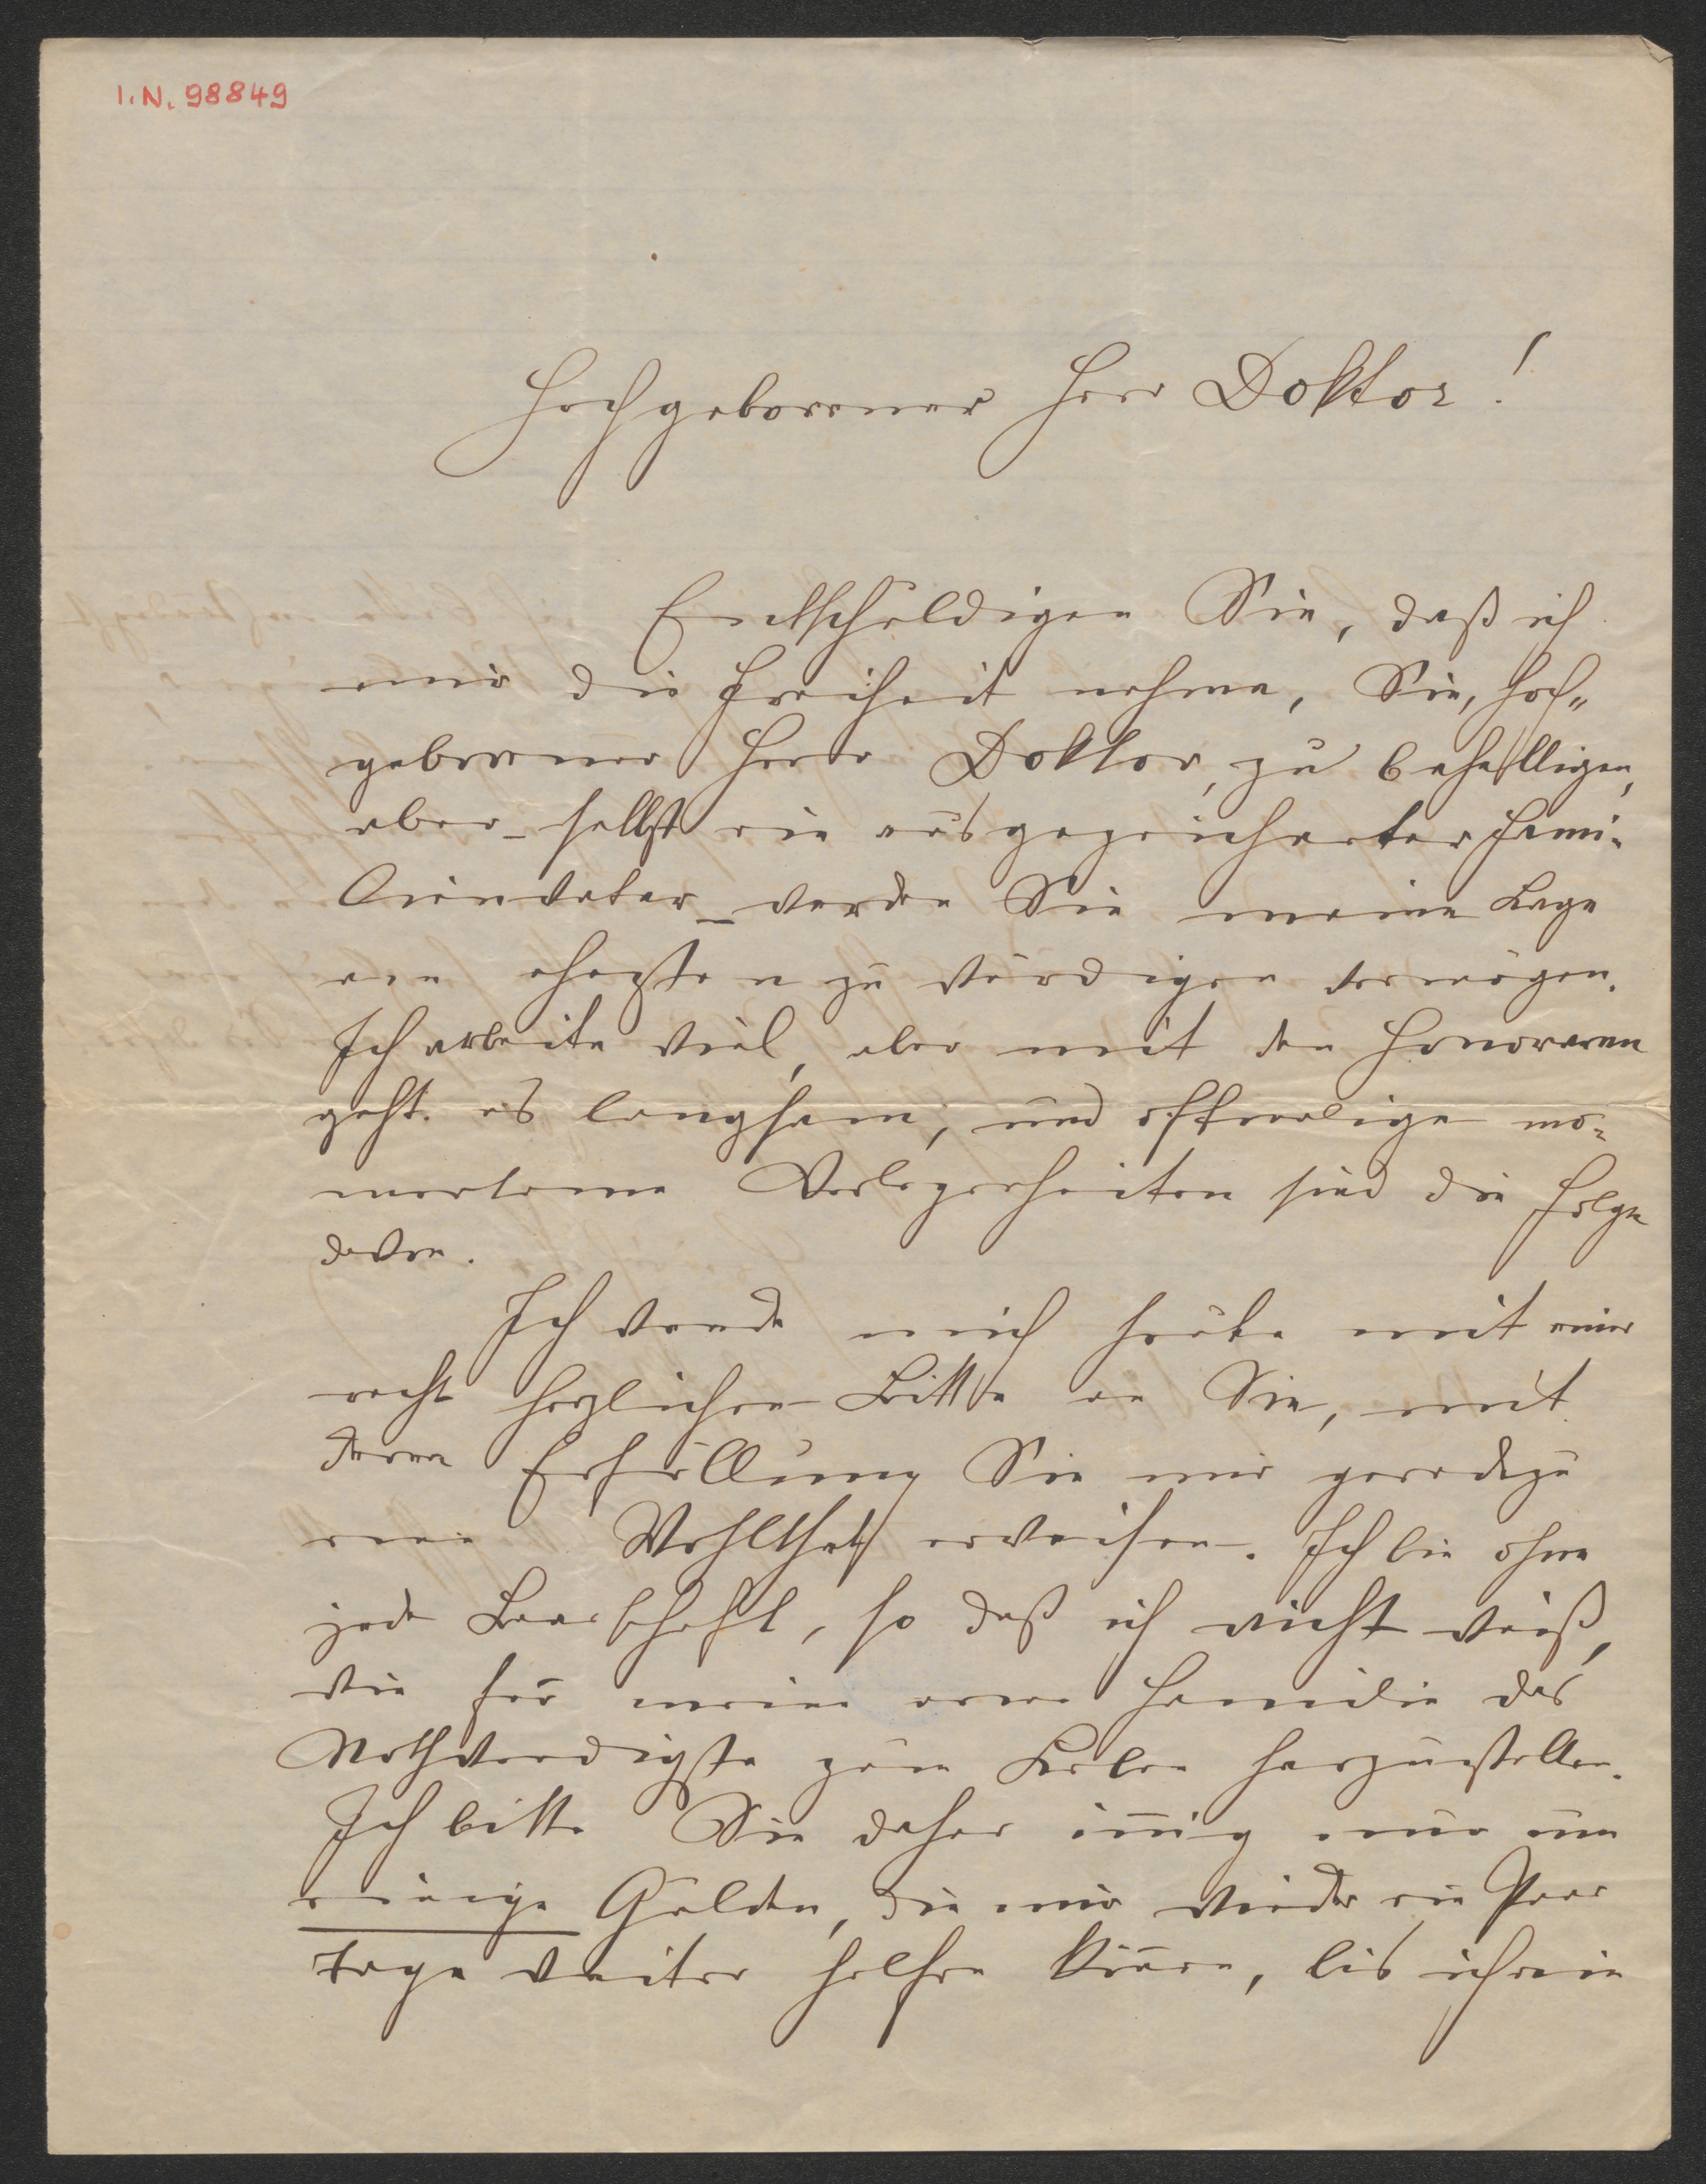 I.N. 98849
Hochgeborener Herr Doktor!
Entschuldigen Sie, daß ich
mir die Freiheit nehme, Sie, hoch„
geborener Herr Doktor, zu behelligen,
aber – selbst ein ausgezeichneter Fami-
lienvater – werden Sie meine Lage
am ehesten zu würdigen vermögen.
Ich arbeite viel, aber mit den Honoraren
geht es langsam, und oftmalige mo-
mentane Verlegenheiten sind die Folge
davon.
Ich wende mich heute mit einer
recht herzlichen Bitte an Sie, mit
deren Erfüllung Sie mir geradezu
eine Wohlthat erweisen. Ich bin ohne
jede Baarschaft, so daß ich nicht weiß,
wie für meine arme Familie das
Nothwendigste zum Leben herzustellen.
Ich bitte Sie daher innig nur um
einige Gulden, die mir wieder ein Paar
Tage weiter helfen können, bis ich ein